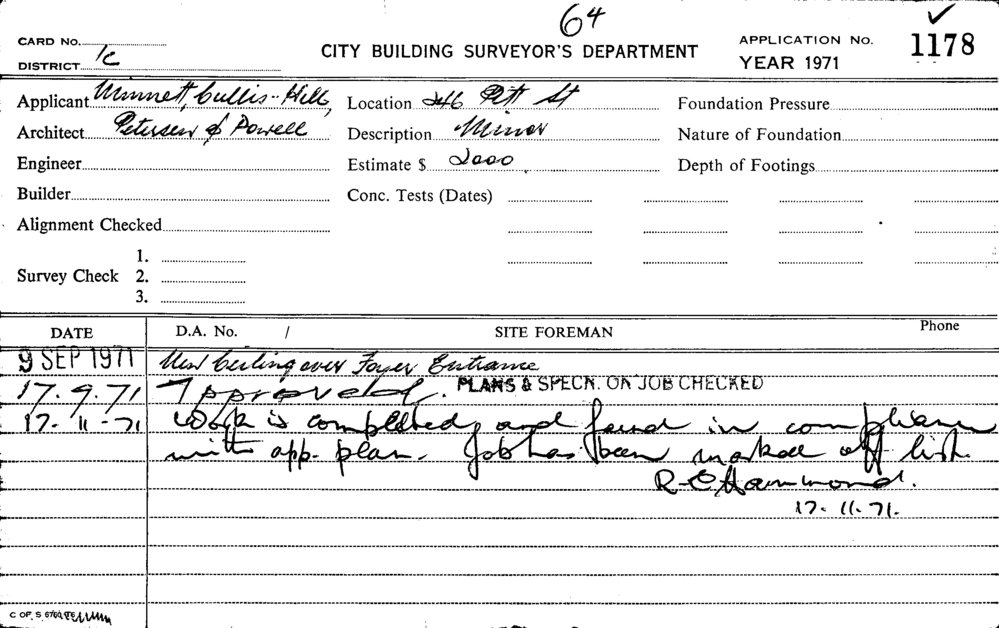 64
CARD No. CITY BUILDING SURVEYOR'S DEPARTMENT APPLICATION No. 1178
DISTRICT 1c YEAR 1971
Applicant Minnett, Cullis-Hill, Location 246 Pitt St Foundation Pressure
Architect Petersen & Powell Description Minor Nature of Foundation
Engineer Estimate $ 2000 Depth of Footings
Builder Conc. Tests (Dates)
Alignment Checked
1.
Survey Check 2.
3.
DATE D.A. No. / SITE FOREMAN Phone
9 SEP 1971 New Ceiling over Foyer Entrance
17.9.71 Approved. PLANS & SPECN. ON JOB CHECKED
17-11-71 Work is completed and found in compliance
with app. plan. Job has been marked off list.
R-C Hammond.
17-11-71.
C OF. S